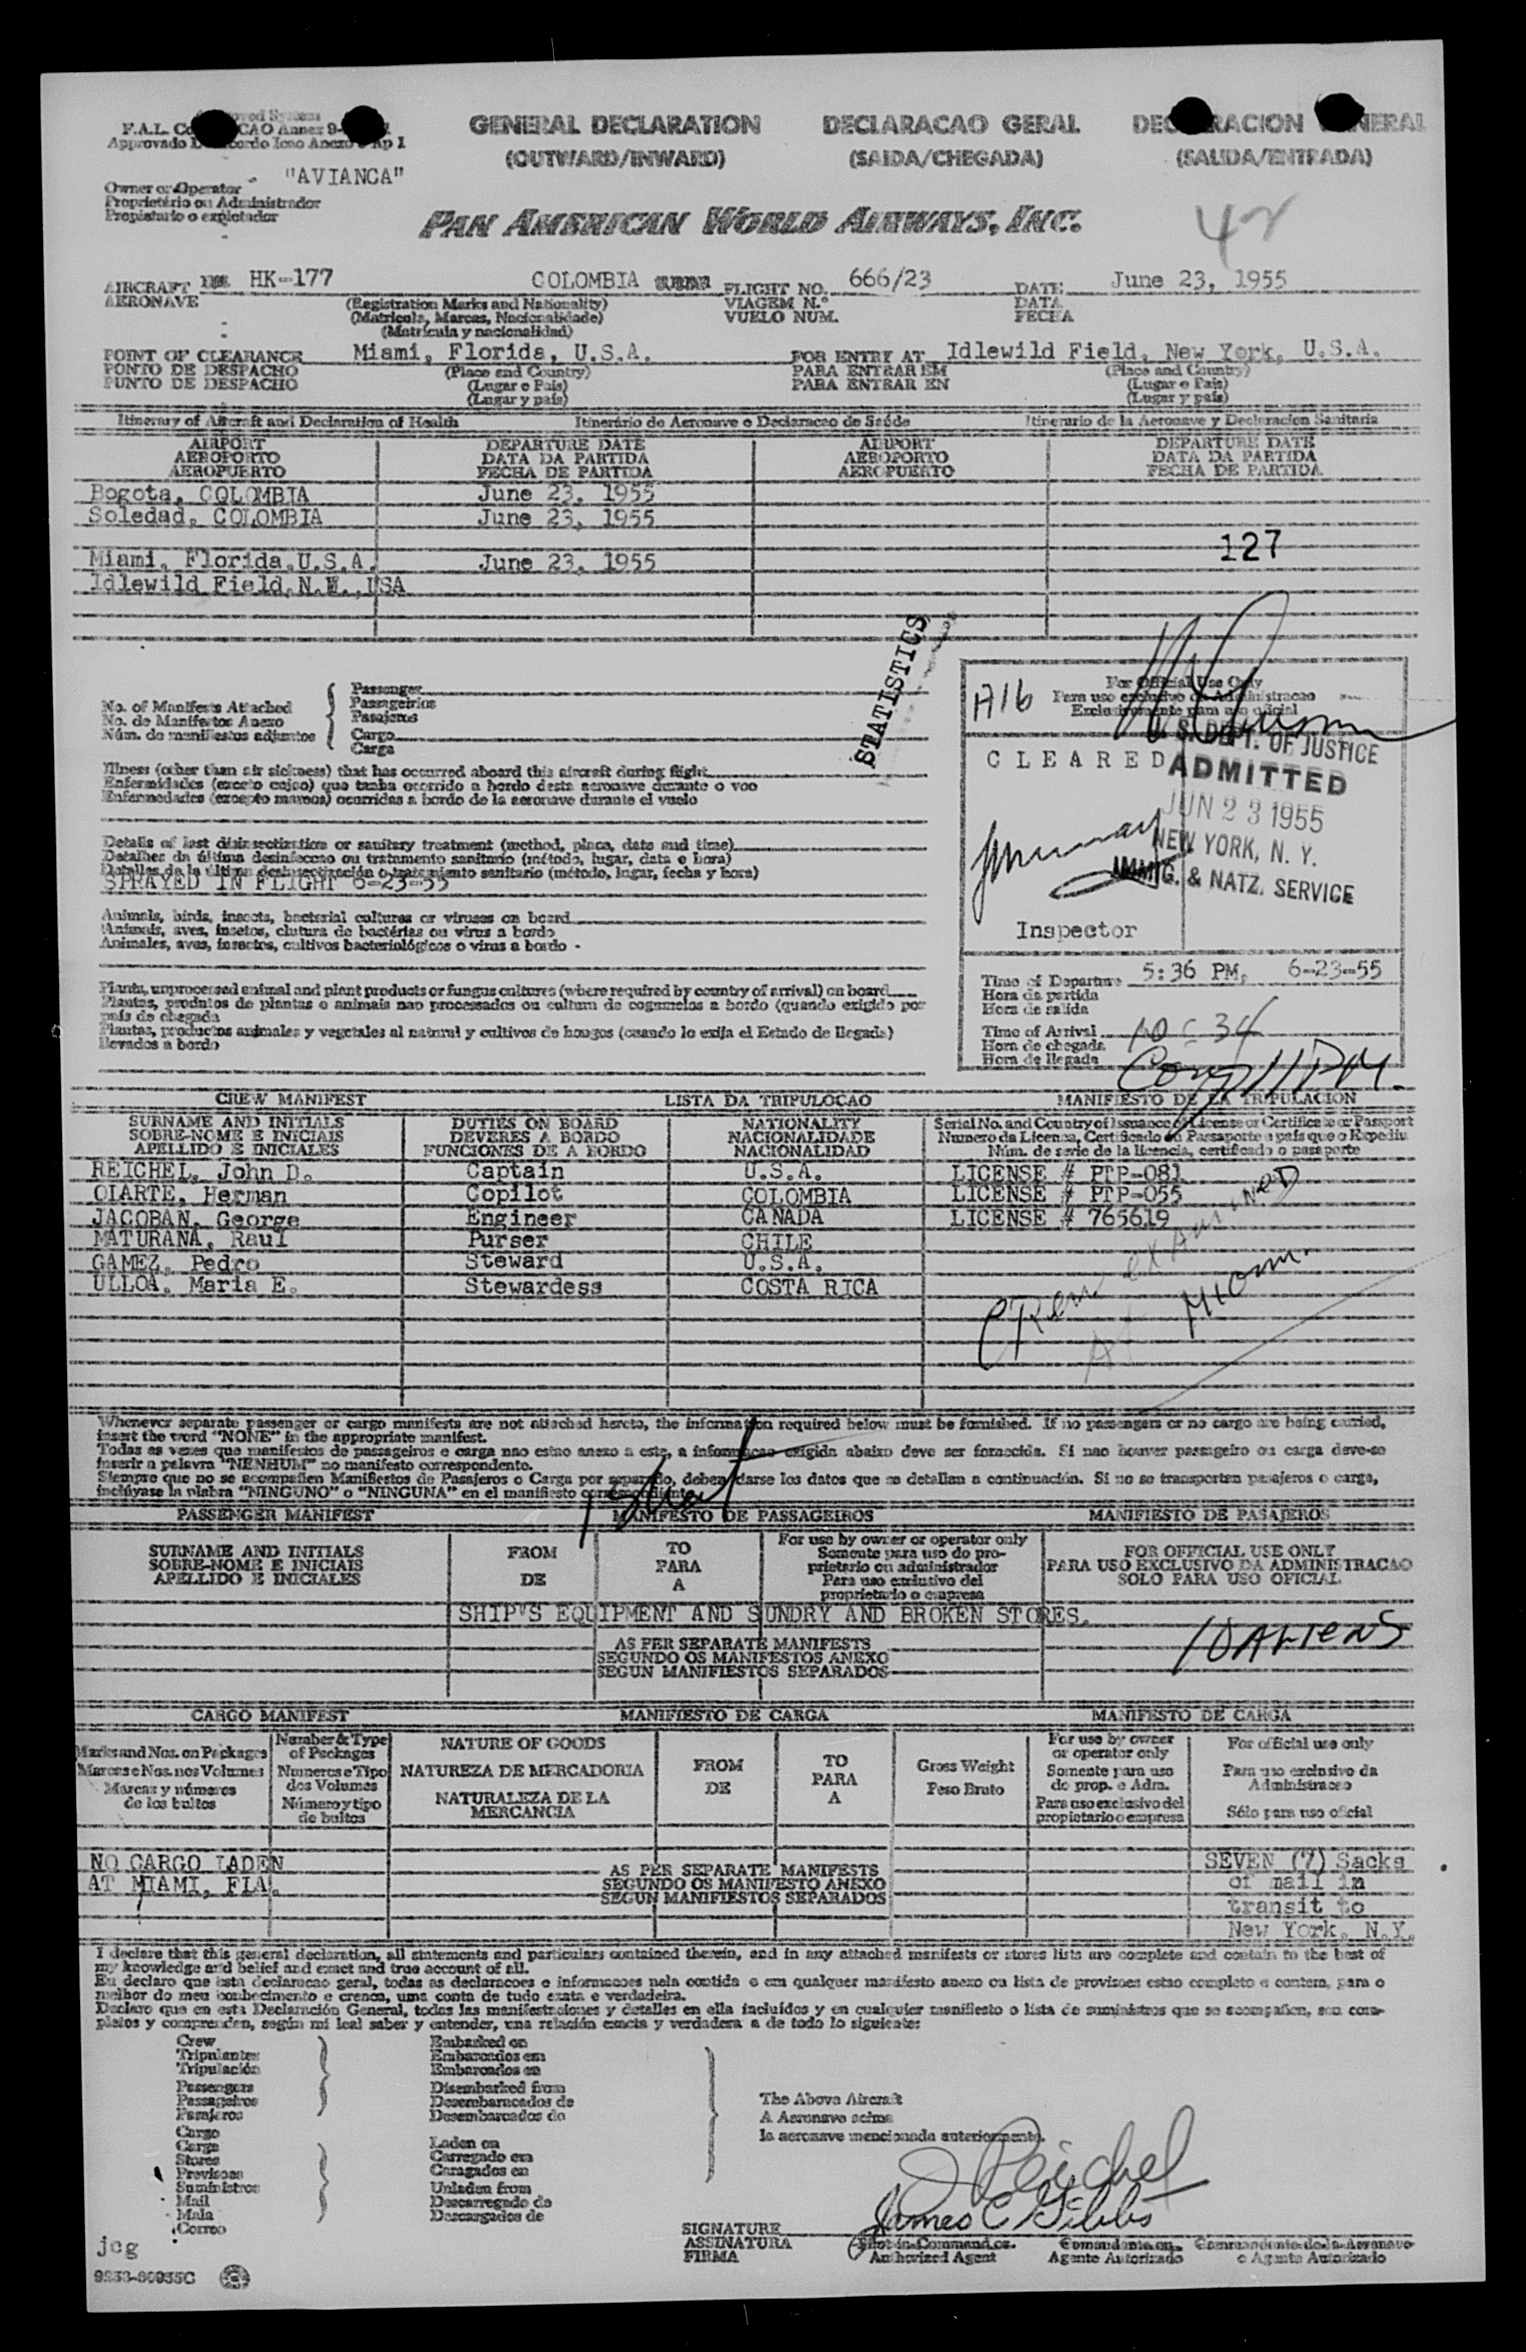 F.A.L. CAO Annex 9
GENERAL DECLARATION DECLARACAO GERAL
(OUTWARD/INWARD) (SAIDA/CHEGADA) (SALIDA/ENTRADA)
"AVIANCA"
Owner or Operator
Proprietário ou Administrador
Propietario o explotador
PAN AMERICAN WORLD AIRWAYS, INC.
42
AIRCRAFT HK-177 COLOMBIA FLIGHT NO. 666/23 DATE June 23, 1955
AERONAVE (Registration Marks and Nationality) VIAGEM N.º DATA
(Matricula, Marcas, Nacionalidade) VUELO NUM. FECHA
(Matrícula y nacionalidad)
POINT OF CLEARANCE Miami, Florida, U.S.A. FOR ENTRY AT Idlewild Field, New York, U.S.A.
PONTO DE DESPACHO (Place and Country) PARA ENTRAR EM (Place and Country)
PUNTO DE DESPACHO (Lugar e Pais) PARA ENTRAR EN (Lugar e Pais)
(Lugar y país) (Lugar y país)
Itinerary of Aircraft and Declaration of Health Itinerário de Aeronave e Declaracao de Saúde Itinerario de la Aeronave y Declaracion Sanitaria
AIRPORT DEPARTURE DATE AIRPORT DEPARTURE DATE
AEROPORTO DATA DA PARTIDA AEROPORTO DATA DA PARTIDA
AEROPUERTO FECHA DE PARTIDA AEROPUERTO FECHA DE PARTIDA
Bogota, COLOMBIA June 23, 1955
Soledad, COLOMBIA June 23, 1955
127
Miami, Florida,U.S.A. June 23, 1955
Idlewild Field,N.Y.,USA
STATISTICS
No. of Manifests Attached
No. de Manifestos Anexo
Núm. de manifiestos adjuntos
Passenger
Passageiros
Pasajeros
Cargo
Carga
Illness (other than air sickness) that has occurred aboard this aircraft during flight
Enfermidades (exceto enjoo) que tenha ocorrido a bordo desta aeronave durante o voo
Enfermedades (excepto mareos) ocurridas a bordo de la aeronave durante el vuelo
Details of last disinsectization or sanitary treatment (method, place, date and time)
Detalhes da última desinfeccao ou tratamento sanitario (método, lugar, data e hora)
Detalles de la última desinsectización o tratamiento sanitario (método, lugar, fecha y hora)
SPRAYED IN FLIGHT 6-23-55
Animals, birds, insects, bacterial cultures or viruses on board
Animais, aves, insetos, clutura de bactérias ou virus a bordo
Animales, aves, insectos, cultivos bacteriológicos o virus a bordo -
Plants, unprocessed animal and plant products or fungus cultures (where required by country of arrival) on board
Plantas, produtos de plantas o animais nao processados ou cultura de cogumelos a bordo (quando exigido por
país de chegada
Plantas, productos animales y vegetales al natural y cultivos de hongos (cuando lo exija el Estado de llegada)
llevados a bordo
A16
For Official Use Only
Para uso exclusivo da Administracao
Exclusivamente para uso oficial
CLEARED
S. DEPT. OF JUSTICE
ADMITTED
JUN 23 1955
NEW YORK, N. Y.
IMMIG. & NATZ. SERVICE
Inspector
Time of Departure 5:36 PM, 6-23-55
Hora da partida
Hora de salida
Time of Arrival 10 34
Hora de chegada
Hora de llegada
CREW MANIFEST LISTA DA TRIPULOCAO MANIFIESTO DE LA TRIPULACION
SURNAME AND INITIALS DUTIES ON BOARD NATIONALITY Serial No. and Country of Issuance of License or Certificate or Passport
SOBRE-NOME E INICIAIS DEVERES A BORDO NACIONALIDADE Numero da Licenca, Certificado ou Passaporte e país que o Expediu
APELLIDO E INICIALES FUNCIONES DE A BORDO NACIONALIDAD Núm. de serie de la licencia, certificado o pasaporte
REICHEL, John D. Captain U.S.A. LICENSE # PTP-081
OLARTE, Herman Copilot COLOMBIA LICENSE # PTP-055
JACOBAN, George Engineer CANADA LICENSE # 765619
MATURANA, Raul Purser CHILE
GAMEZ, Pedro Steward U.S.A.
ULLOA, Maria E. Stewardess COSTA RICA
Crew examined
At Miami
Whenever separate passenger or cargo manifests are not attached hereto, the information required below must be furnished. If no passengers or no cargo are being carried,
insert the word "NONE" in the appropriate manifest.
Todas as vezes que manifestos de passageiros e carga nao estao anexo a este, a informacao exigida abaixo deve ser fornecida. Si nao houver passageiro ou carga deve-se
inserir a palavra "NENHUM" no manifesto correspondente.
Siempre que no se acompañen Manifiestos de Pasajeros o Carga por separado, deben darse los datos que se detallan a continuación. Si no se transporten pasajeros o carga,
inclúyase la plabra "NINGUNO" o "NINGUNA" en el manifiesto correspondiente.
PASSENGER MANIFEST MANIFESTO DE PASSAGEIROS MANIFIESTO DE PASAJEROS
SURNAME AND INITIALS
SOBRE-NOME E INICIAIS
APELLIDO E INICIALES
FROM
DE
TO
PARA
A
For use by owner or operator only
Somente para uso do pro-
prietario ou administrador
Para uso exclusivo del
propietario o empresa
FOR OFFICIAL USE ONLY
PARA USO EXCLUSIVO DA ADMINISTRACAO
SOLO PARA USO OFICIAL
SHIP'S EQUIPMENT AND SUNDRY AND BROKEN STORES.
AS PER SEPARATE MANIFESTS
SEGUNDO OS MANIFESTOS ANEXO
SEGUN MANIFIESTOS SEPARADOS
10 ALIENS
CARGO MANIFEST MANIFIESTO DE CARGA MANIFESTO DE CARGA
Marks and Nos. on Packages
Marcas e Nos. nos Volumes
Marcas y números
de los bultos
Number & Type
of Packages
Numeros e Tipo
dos Volumes
Número y tipo
de bultos
NATURE OF GOODS
NATUREZA DE MERCADORIA
NATURALEZA DE LA
MERCANCIA
FROM
DE
TO
PARA
A
Gross Weight
Peso Bruto
For use by owner
or operator only
Somente para uso
do prop. e Adm.
Para uso exclusivo del
propietario o empresa
For official use only
Para uso exclusivo da
Administracao
Sólo para uso oficial
NO CARGO LADEN
AT MIAMI, FLA.
AS PER SEPARATE MANIFESTS
SEGUNDO OS MANIFESTO ANEXO
SEGUN MANIFIESTOS SEPARADOS
SEVEN (7) Sacks
of mail in
transit to
New York, N.Y.
I declare that this general declaration, all statements and particulars contained therein, and in any attached manifests or stores lists are complete and contain to the best of
my knowledge and belief and exact and true account of all.
Eu declaro que esta declaracao geral, todas as declaracoes e informacoes nela contida e em qualquer manifesto anexo ou lista de provisoes estao completo e contem, para o
melhor do meu conhecimento e crenca, uma conta de tudo exata e verdadeira.
Declaro que en esta Declaración General, todas las manifestaciones y detalles en ella incluídos y en cualquier manifiesto o lista de suministros que se acompañen, son com-
pletos y comprenden, según mi leal saber y entender, una relación exacta y verdadera a de todo lo siguiente:
Crew
Tripulantes
Tripulación
Passengers
Passageiros
Pasajeros
Cargo
Carga
Stores
Provisoes
Suministros
Mail
Mala
Correo
Embarked on
Embarcados em
Embarcados en
Disembarked from
Desembarcados de
Desembarcados de
Laden on
Carregado em
Caragados en
Unladen from
Descarregado de
Descargados de
The Above Aircraft
A Aeronave acima
la aeronave mencionada anteriormente.
J Reichel
James C Gibbs
SIGNATURE
ASSINATURA
FIRMA
Pilot in Command or Comandante ou Commandante de la Aeronave
Authorized Agent Agente Autorizado o Agente Autorizado
jcg